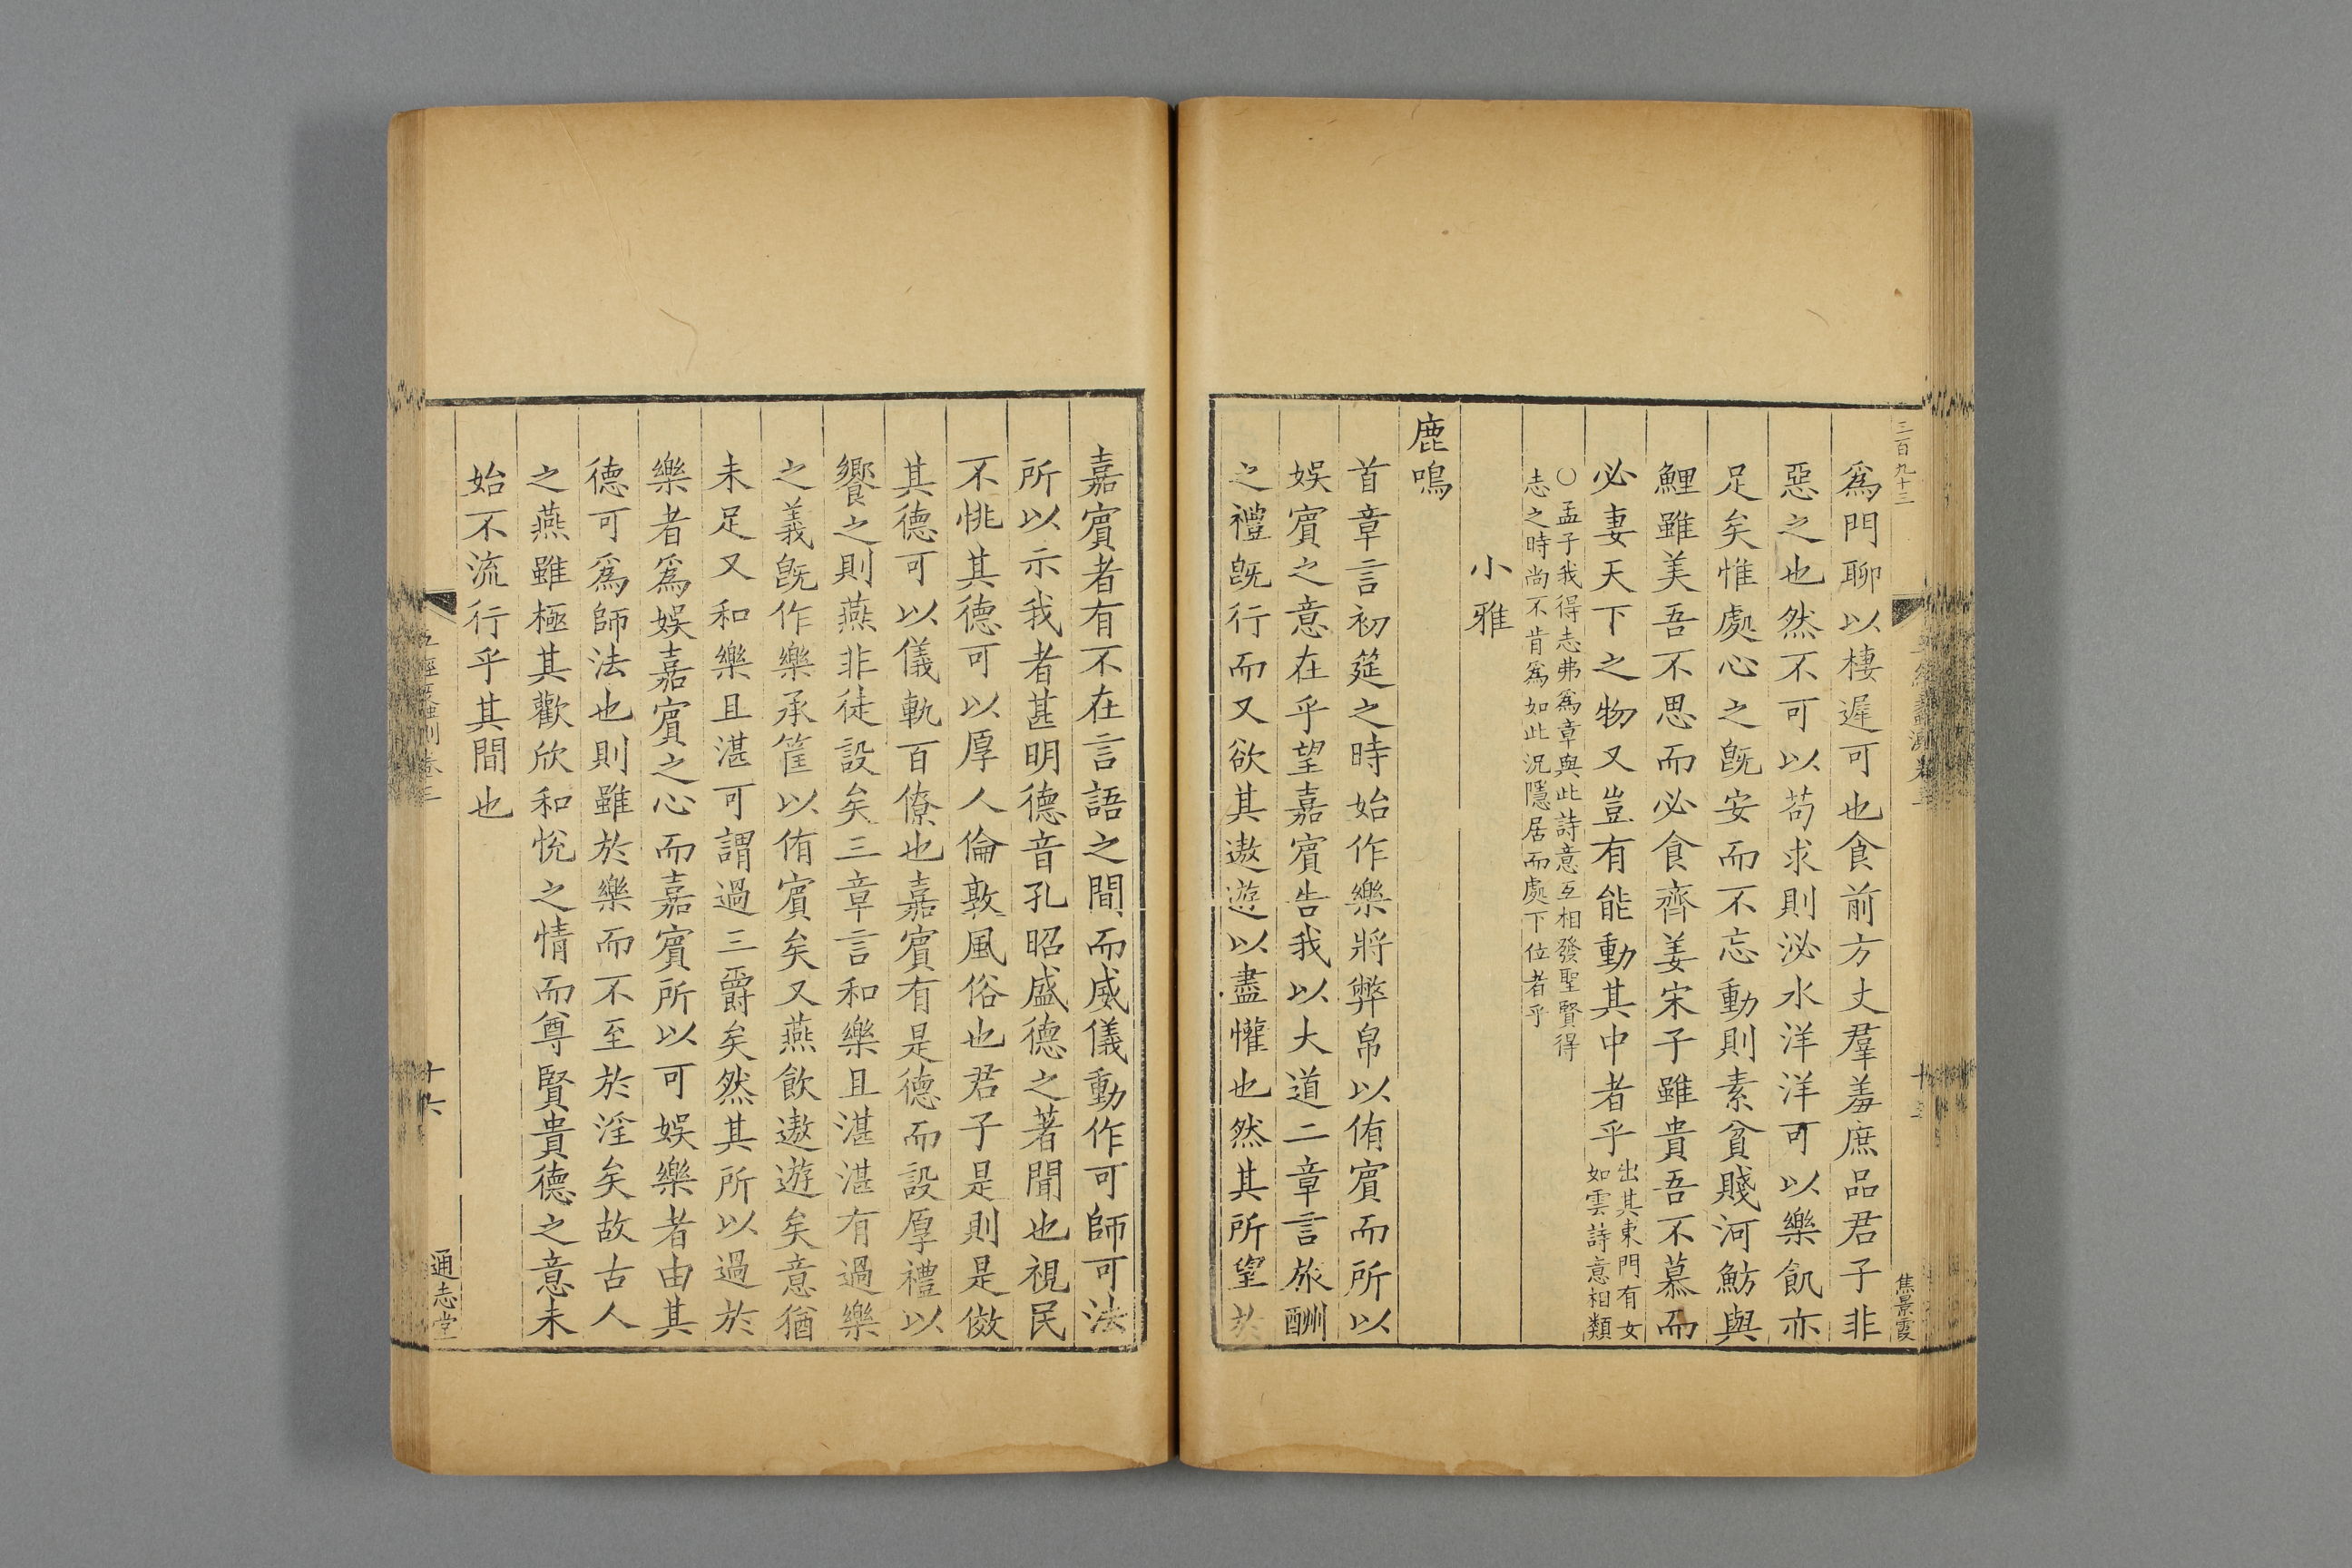 三百九十三
爲門聊以棲遲可也食前方丈羣羞庶品君子非
惡之也然不可以苟求則泌水洋洋可以樂飢亦
足矣惟處心之旣安而不忘動則素貧賤河魴與
鯉雖美吾不思而必食齊姜宋子雖貴吾不慕而
必妻天下之物又豈有能動其中者乎
出其東門有女
如雲詩意相類
〇孟子我得志弗爲章與此詩意互相發聖賢得
志之時尚不肯爲如此況隱居而處下位者乎
小雅
鹿鳴
首章言初筵之時始作樂將弊帛以侑賓而所以
娛賓之意在乎望嘉賓告我以大道二章言旅酬
之禮旣行而又欲其遨遊以盡懽也然其所望於
焦景霞
嘉賓者有不在言語之間而威儀動作可師可法
所以示我者甚明德音孔昭盛德之著聞也視民
不恌其德可以厚人倫敦風俗也君子是則是傚
其德可以儀軌百僚也嘉賓有是德而設厚禮以
饗之則燕非徒設矣三章言和樂且湛湛有過樂
之義旣作樂承筐以侑賓矣又燕飲遨遊矣意猶
未足又和樂且湛可謂過三爵矣然其所以過於
樂者爲娛嘉賓之心而嘉賓所以可娛樂者由其
德可爲師法也則雖於樂而不至於淫矣故古人
之燕雖極其歡欣和悅之情而尊賢貴德之意未
始不流行乎其間也
十六
通志堂